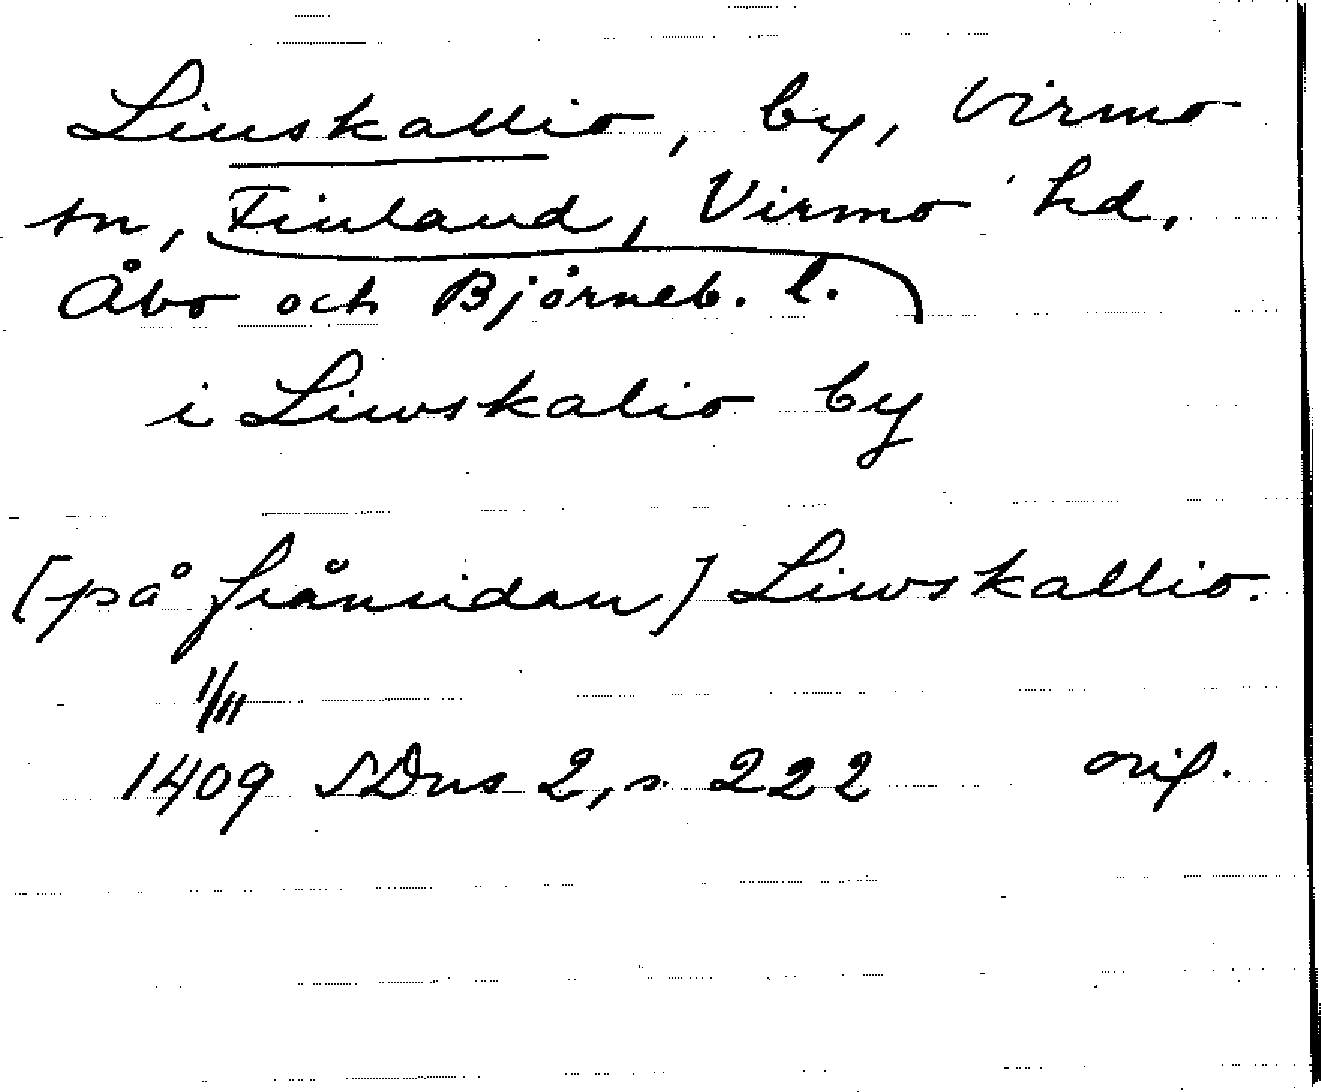 Liuskallio, by, Virmo
sn, Finland, Virmo hd,
Åbo och Björneb. l.
i Liwskalio by
[på frånsidan] Liwskallio.
1/III
1409 SDns 2, s. 222 orig.